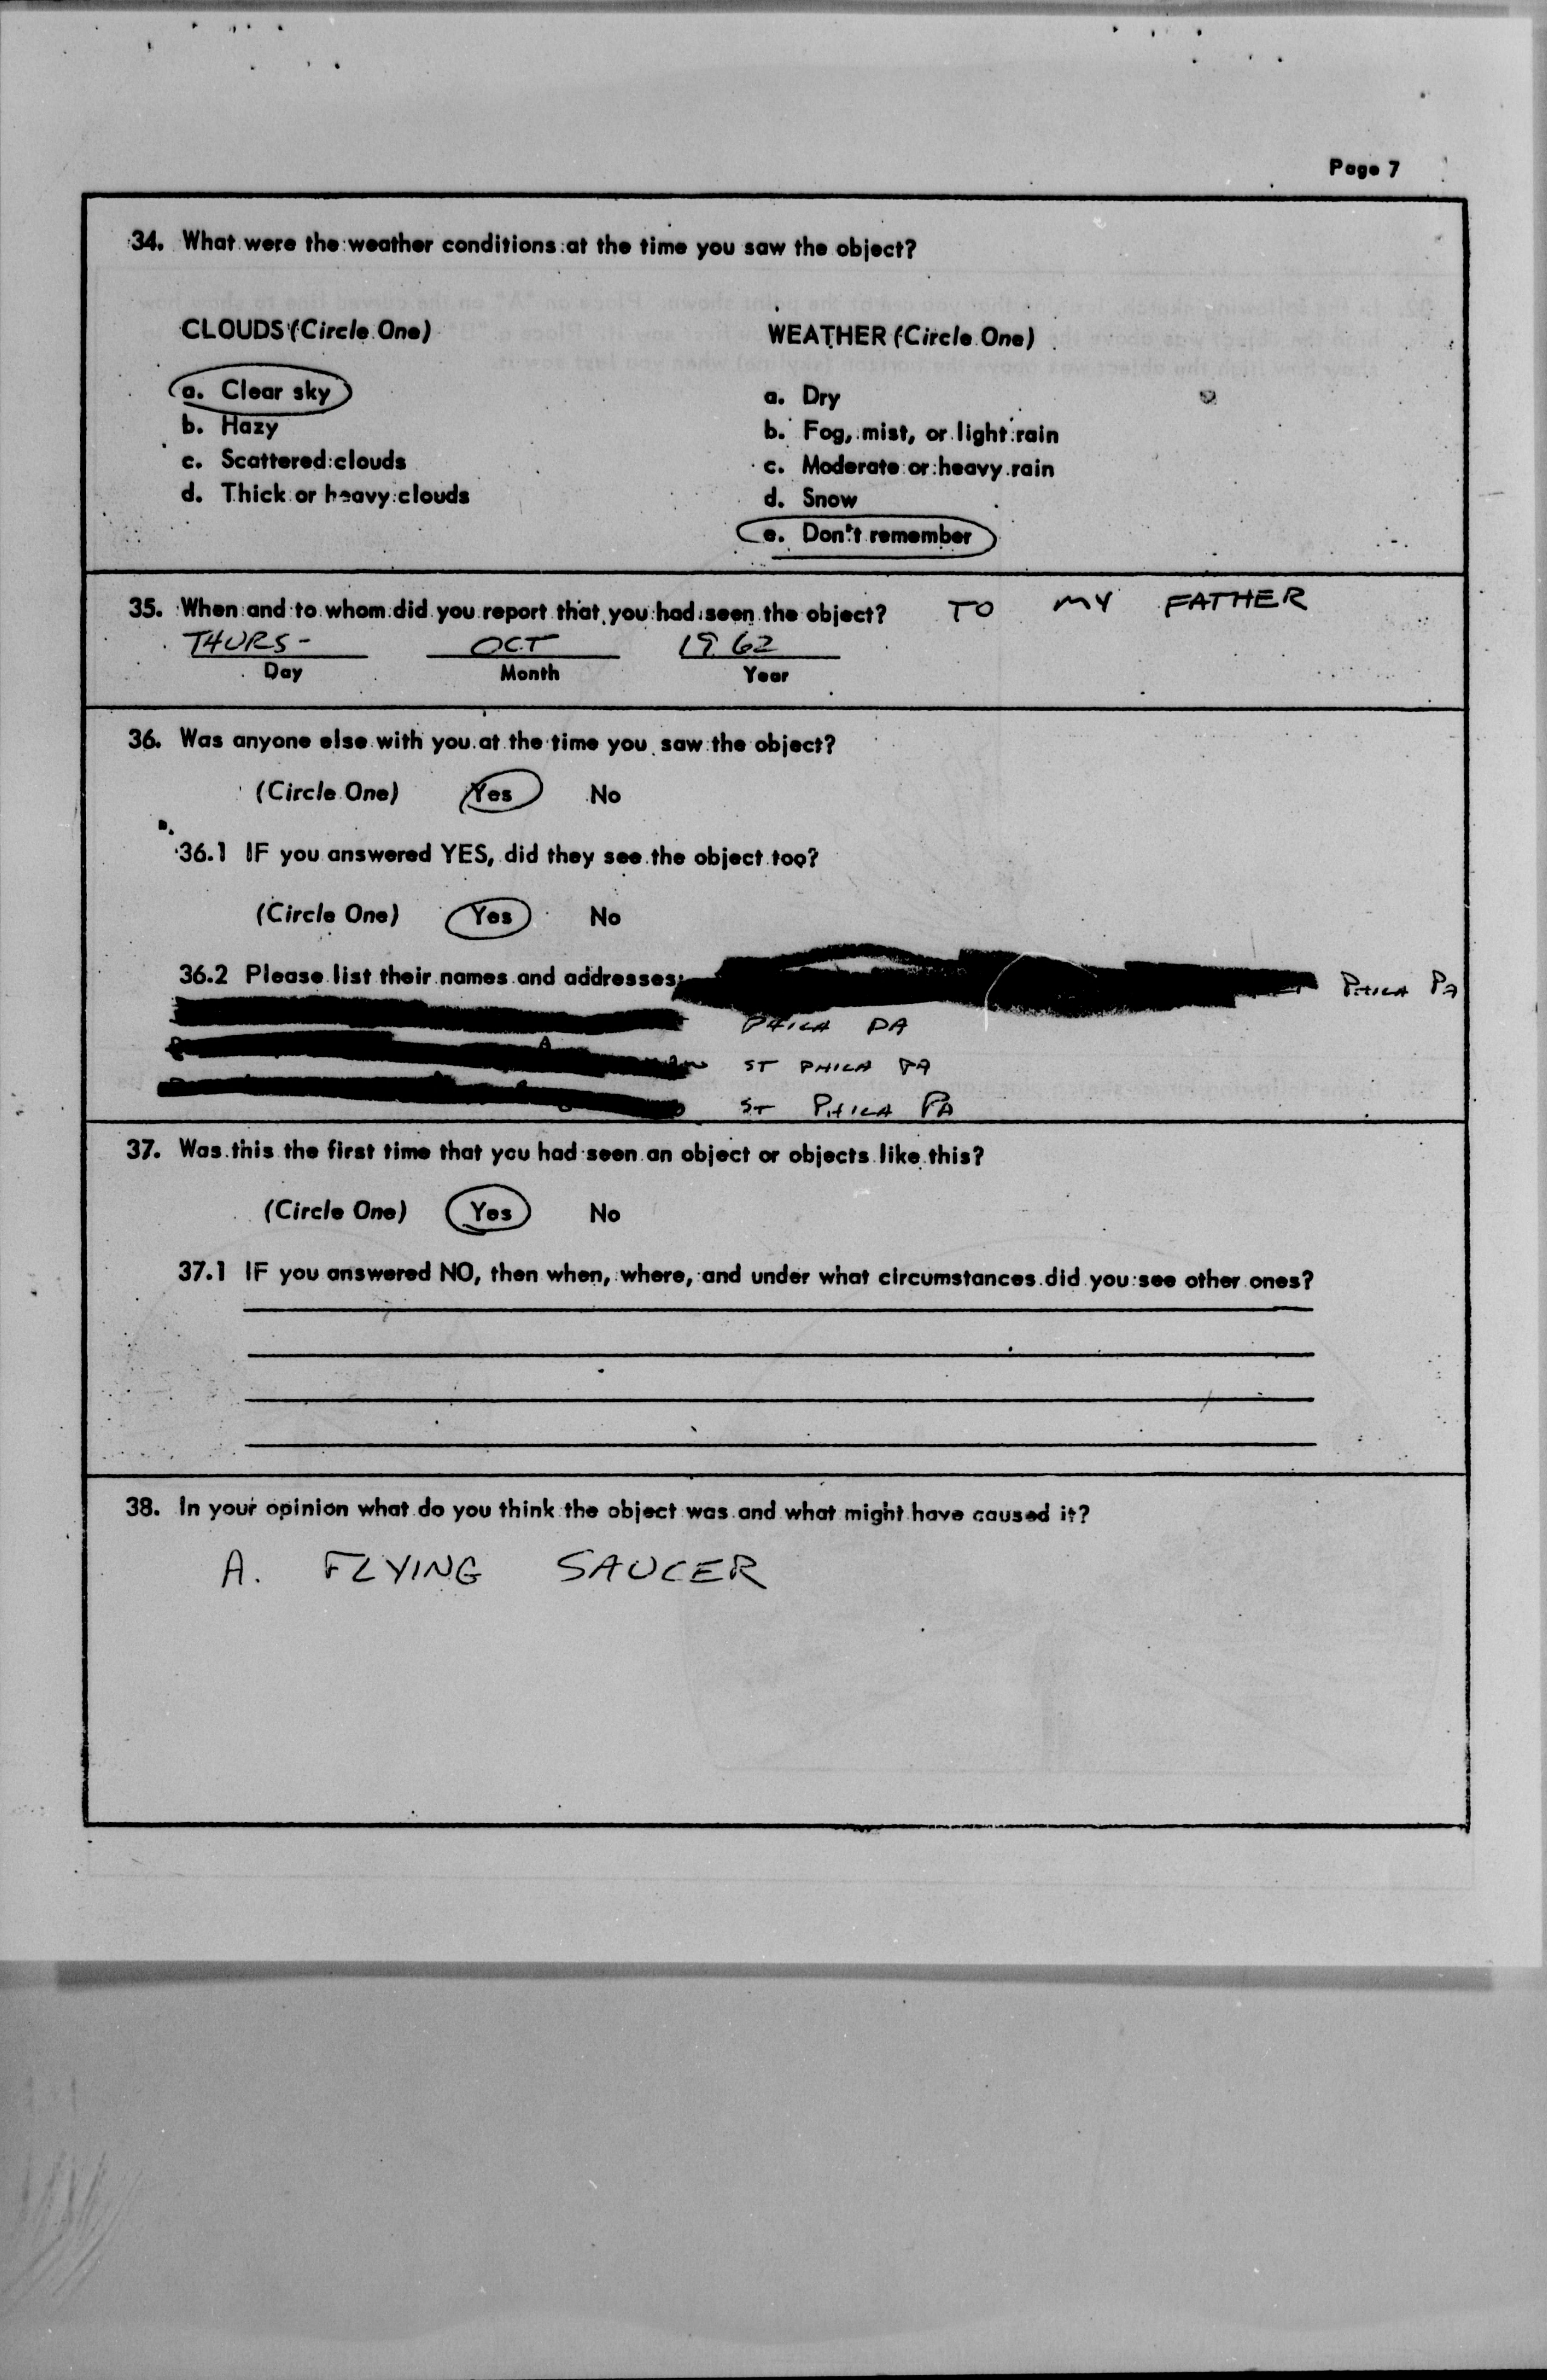 Page 7
34. What were the weather conditions at the time you saw the object?
CLOUDS (Circle One)
WEATHER (Circle One)
a. Clear sky
b. Hazy
c. Scattered clouds
d. Thick or heavy clouds
a. Dry
b. Fog, mist, or light rain
c. Moderate or heavy rain
d. Snow
e. Don't remember
35. When and to whom did you report that you had seen the object? TO MY FATHER
THURS- OCT 1962
Day Month Year
36. Was anyone else with you at the time you saw the object?
(Circle One) Yes No
36.1 IF you answered YES, did they see the object too?
(Circle One) Yes No
36.2 Please list their names and addresses: PHILA PA
PHILA PA
ST PHILA PA
ST PHILA PA
37. Was this the first time that you had seen an object or objects like this?
(Circle One) Yes No
37.1 IF you answered NO, then when, where, and under what circumstances did you see other ones?
38. In your opinion what do you think the object was and what might have caused it?
A. FLYING SAUCER